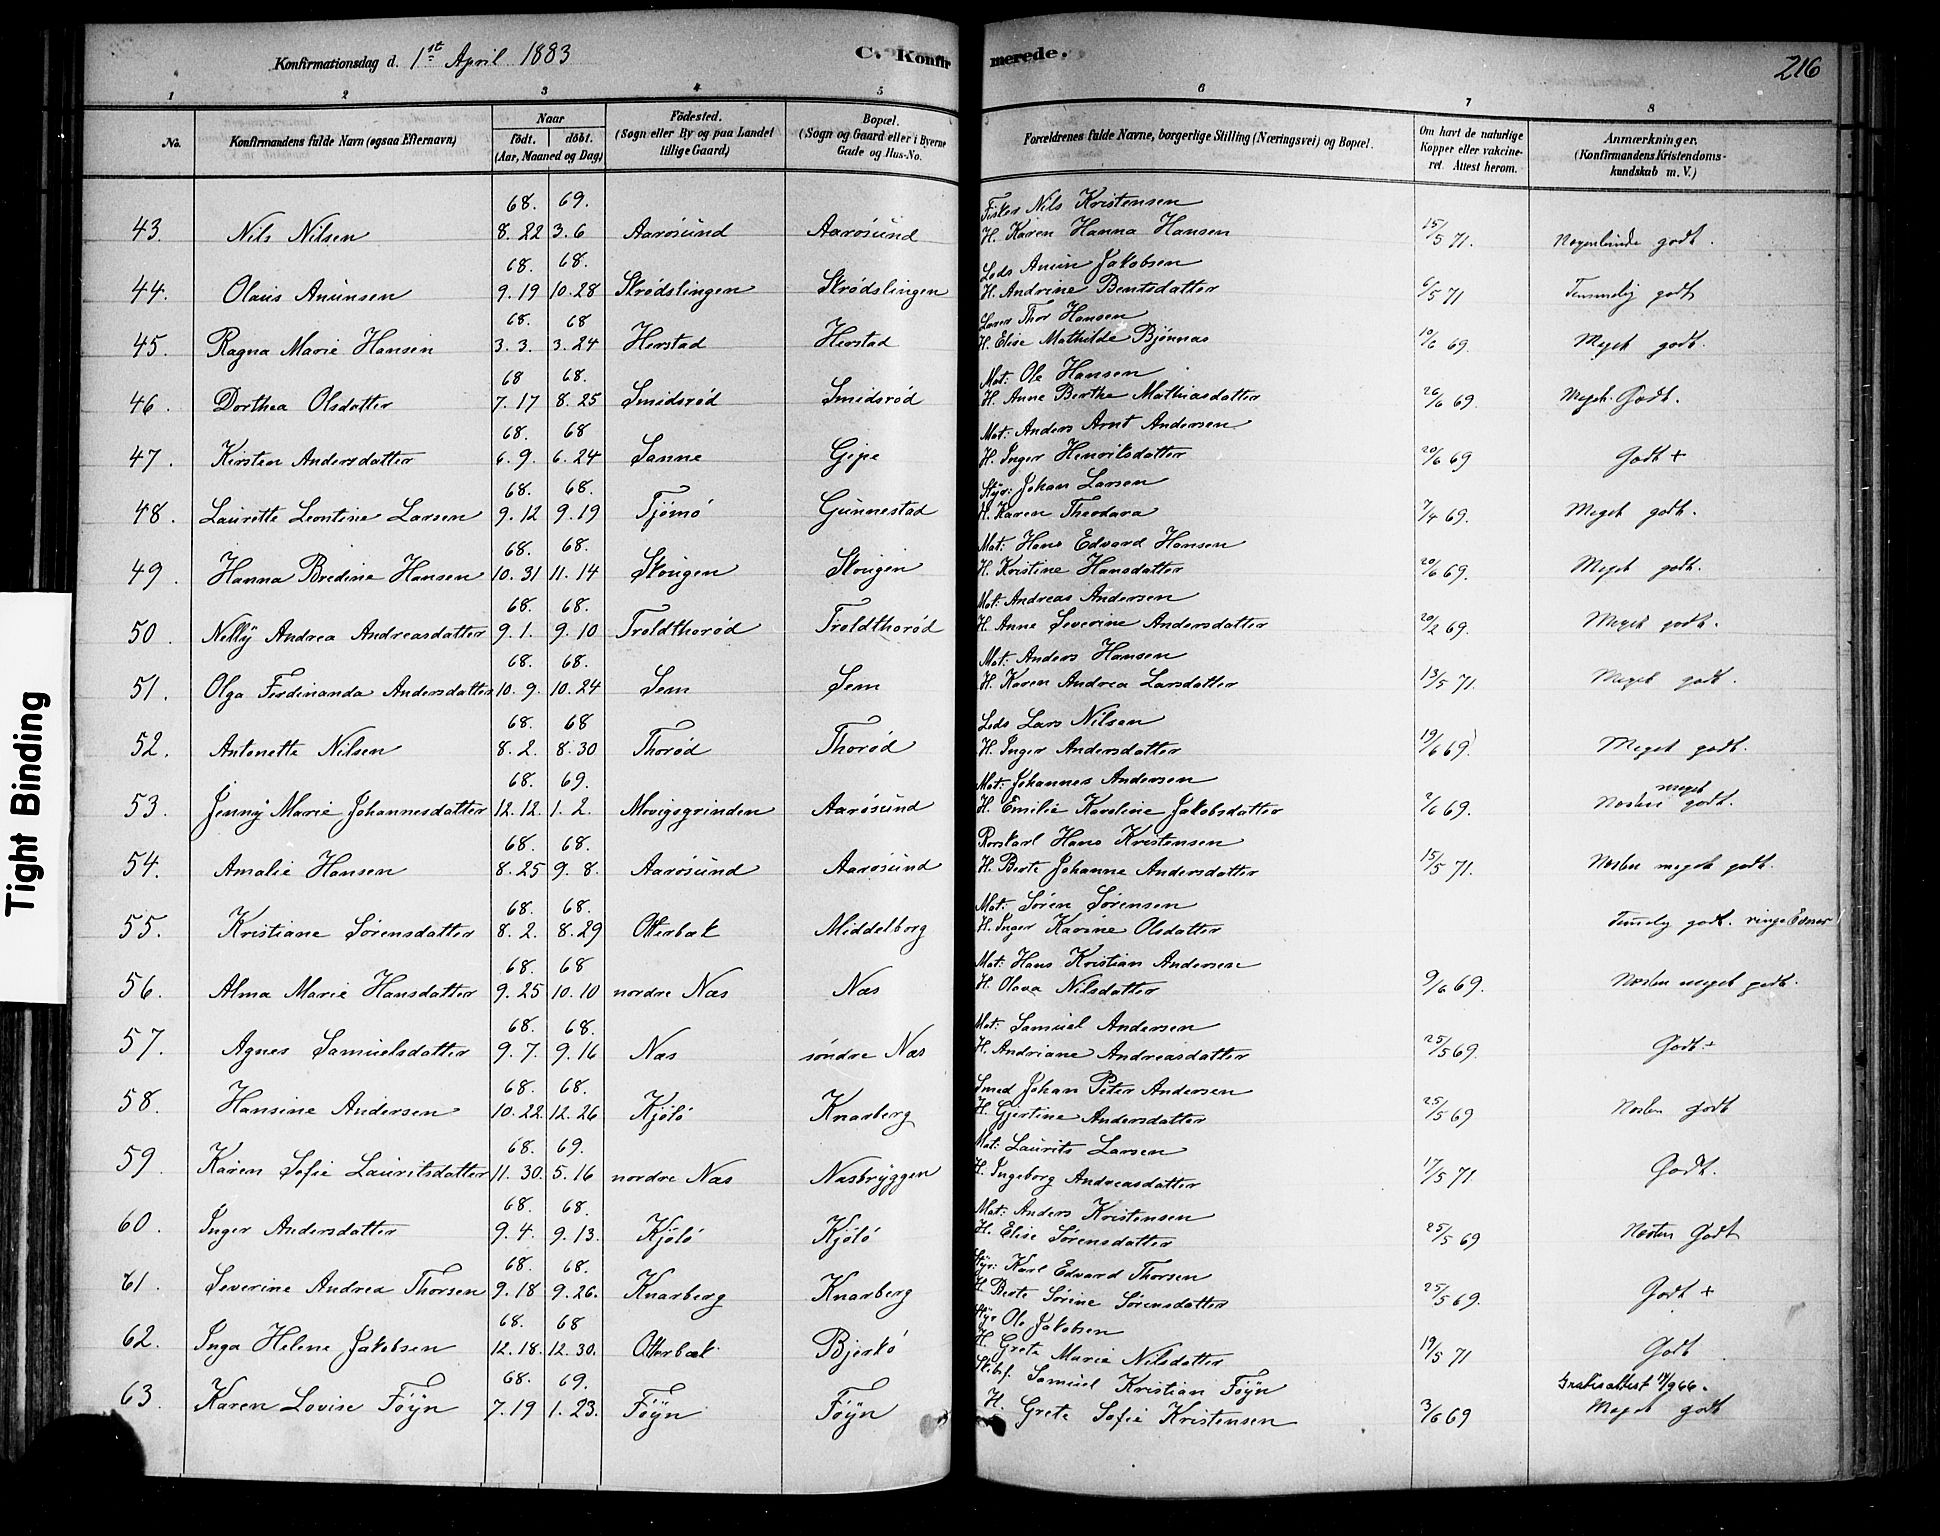 Konfirmationsdag d. 1st April 1883
C. Konfirmerede.
216
1 2 3 4 5 6 7 8
No. Konfirmandens fulde Navn (ogsaa Efternavn) Naar født. døbt. (Aar, Maaned og Dag) Fødested. (Sogn eller By og paa Landet tillige Gaard) Bopæl. (Sogn og Gaard eller i Byerne Gade og Hus-No. Forældrenes fulde Navne, borgerlige Stilling (Næringsvei) og Bopæl. Om havt de naturlige Kopper eller vakcineret. Attest herom. Anmærkninger. (Konfirmandens Kristendomskundskab m. V.)
68. 69. Fisker Nils Kristensen
43. Nils Nilsen 8. 22 3. 6 Aarøsund Aarøsund H. Karen Hanna Hansen 15/5 71. Nogenlunde godt.
68. 68. Lods Anun Jakobsen
44. Olaus Anunsen 9. 19 10. 28 Skrødslingen Skrødslingen H. Andrine Bentsdatter 6/5 71 Temmelig godt
68. 68 Lærer Thor Hansen
45. Ragna Marie Hansen 3. 3. 3. 24 Herstad Herstad H. Elise Mathilde Bjønnæs 10/6 69. Meget godt.
68 68. Mat: Ole Hansen
46. Dorthea Olsdatter 7. 17 8. 25 Smidsrød Smidsrød H. Anne Berthe Mathiasdatter 26/6 69. Meget Godt.
68. 68 Mat: Anders Arnt Andersen
47. Kirsten Andersdatter 6. 9. 6. 24 Sanne Gipe H. Inger Henriksdatter 20/6 69 Godt +
68. 68. Styr: Johan Larsen
48. Laurette Leontine Larsen 9. 12 9. 19 Tjømø Gunnestad H. Karen Theodora 7/4 69. Meget godt.
68. 68. Mat: Hans Edvard Hansen
49. Hanna Bredine Hansen 10. 31 11. 14 Skougen Skougen H. Kristine Hansdatter 20/6 69. Meget godt.
68. 68. Mat: Andreas Andersen
50. Nelly Andrea Andreasdatter 9. 1. 9. 10 Troldthorød Troldthorød H. Anne Severine Andersdatter 20/2 69. Meget godt.
68. 68. Mat: Anders Hansen
51. Olga Ferdinanda Andersdatter 10. 9. 10. 24 Sem Sem H. Karen Andrea Larsdatter 13/5 71. Meget godt.
68. 68 Lods Lars Nilsen
52. Antonette Nilsen 8. 2. 8. 30 Thorød Thorød H. Inger Andersdatter 19/6 69. Meget godt.
68. 69. Mat: Johannes Andersen meget
53. Jenny Marie Johannesdatter 12. 12. 1. 2. Movigsgrinden Aarøsund H. Emilie Karoline Jakobsdatter 2/6 69. Næsten godt.
68. 68. Rorskarl Hans Kristensen
54. Amalie Hansen 8. 25 9. 8. Aarøsund Aarøsund H. Berte Johanne Andersdatter 15/5 71. Næsten meget godt.
68. 68. Mat: Søren Sørensen
55. Kristiane Sørensdatter 8. 2. 8. 29 Otterbæk Middelborg H. Inger Karine Olsdatter Temmelig godt. ringe Evner
68. 68 Mat: Hans Kristian Andersen
56. Alma Marie Hansdatter 9. 25 10. 10 nordre Næs Næs H. Olava Nilsdatter 9/6 69. Næsten meget godt.
68. 68. Mat: Samuel Andersen
57. Agnes Samuelsdatter 9. 7. 9. 16 Næs søndre Næs H. Andriane Andreasdatter 25/5 69. Godt. +
68. 68. Smed Johan Peter Andersen
58. Hansine Andersen 10. 22. 12. 26 Kjølø Knarberg H. Gjertine Andersdatter 25/5 69 Næsten godt
68. 69. Mat: Laurits Larsen
59. Karen Sofie Lauritsdatter 11. 30. 5. 16 nordre Næs Næsbryggen H. Ingeborg Andreasdatter 17/5 71 Godt.
68. 68. Mat: Anders Kristensen
60. Inger Andersdatter 9. 4. 9. 13. Kjølø Kjølø H. Elise Sørensdatter 25/5 69 Næsten Godt
68. 68. Styr: Karl Edvard Thorsen
61. Severine Andrea Thorsen 9. 18 9. 26. Knarberg Knarberg H. Berte Sørine Sørensdatter 25/5 69. Godt +
68. 68 Styr Ole Jakobsen
62. Inga Helene Jakobsen 12. 18. 12. 30. Otterbæk Bjerkø H. Grete Marie Nilsdatter 19/5 71 Godt
68. 69. Skibsf. Samuel Kristian Føyn Gratisattest 14/9 66.
63. Karen Lovise Føyn 7. 19 1. 23. Føyn Føyn H. Grete Sofie Kristensen 3/6 69 Meget godt
Tight Binding